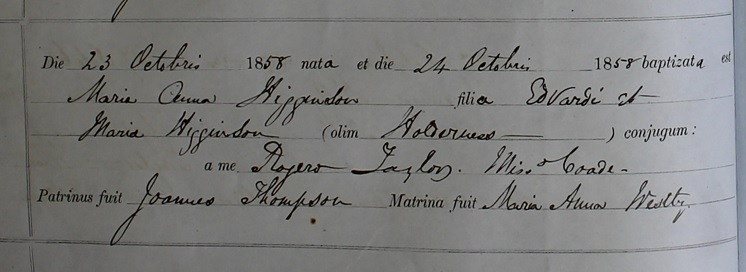 Die 23 Octobris 1858 nata et die 24 Octobris 1858 baptizata est
Maria Anna Higginson filia Edvardi et
Maria Higginson (olim Holderness ) conjugum:
a me Rogero Taylor. Miss° Coad
Patrinus fuit Joannes Thompson Matrina fuit Maria Anna Westby